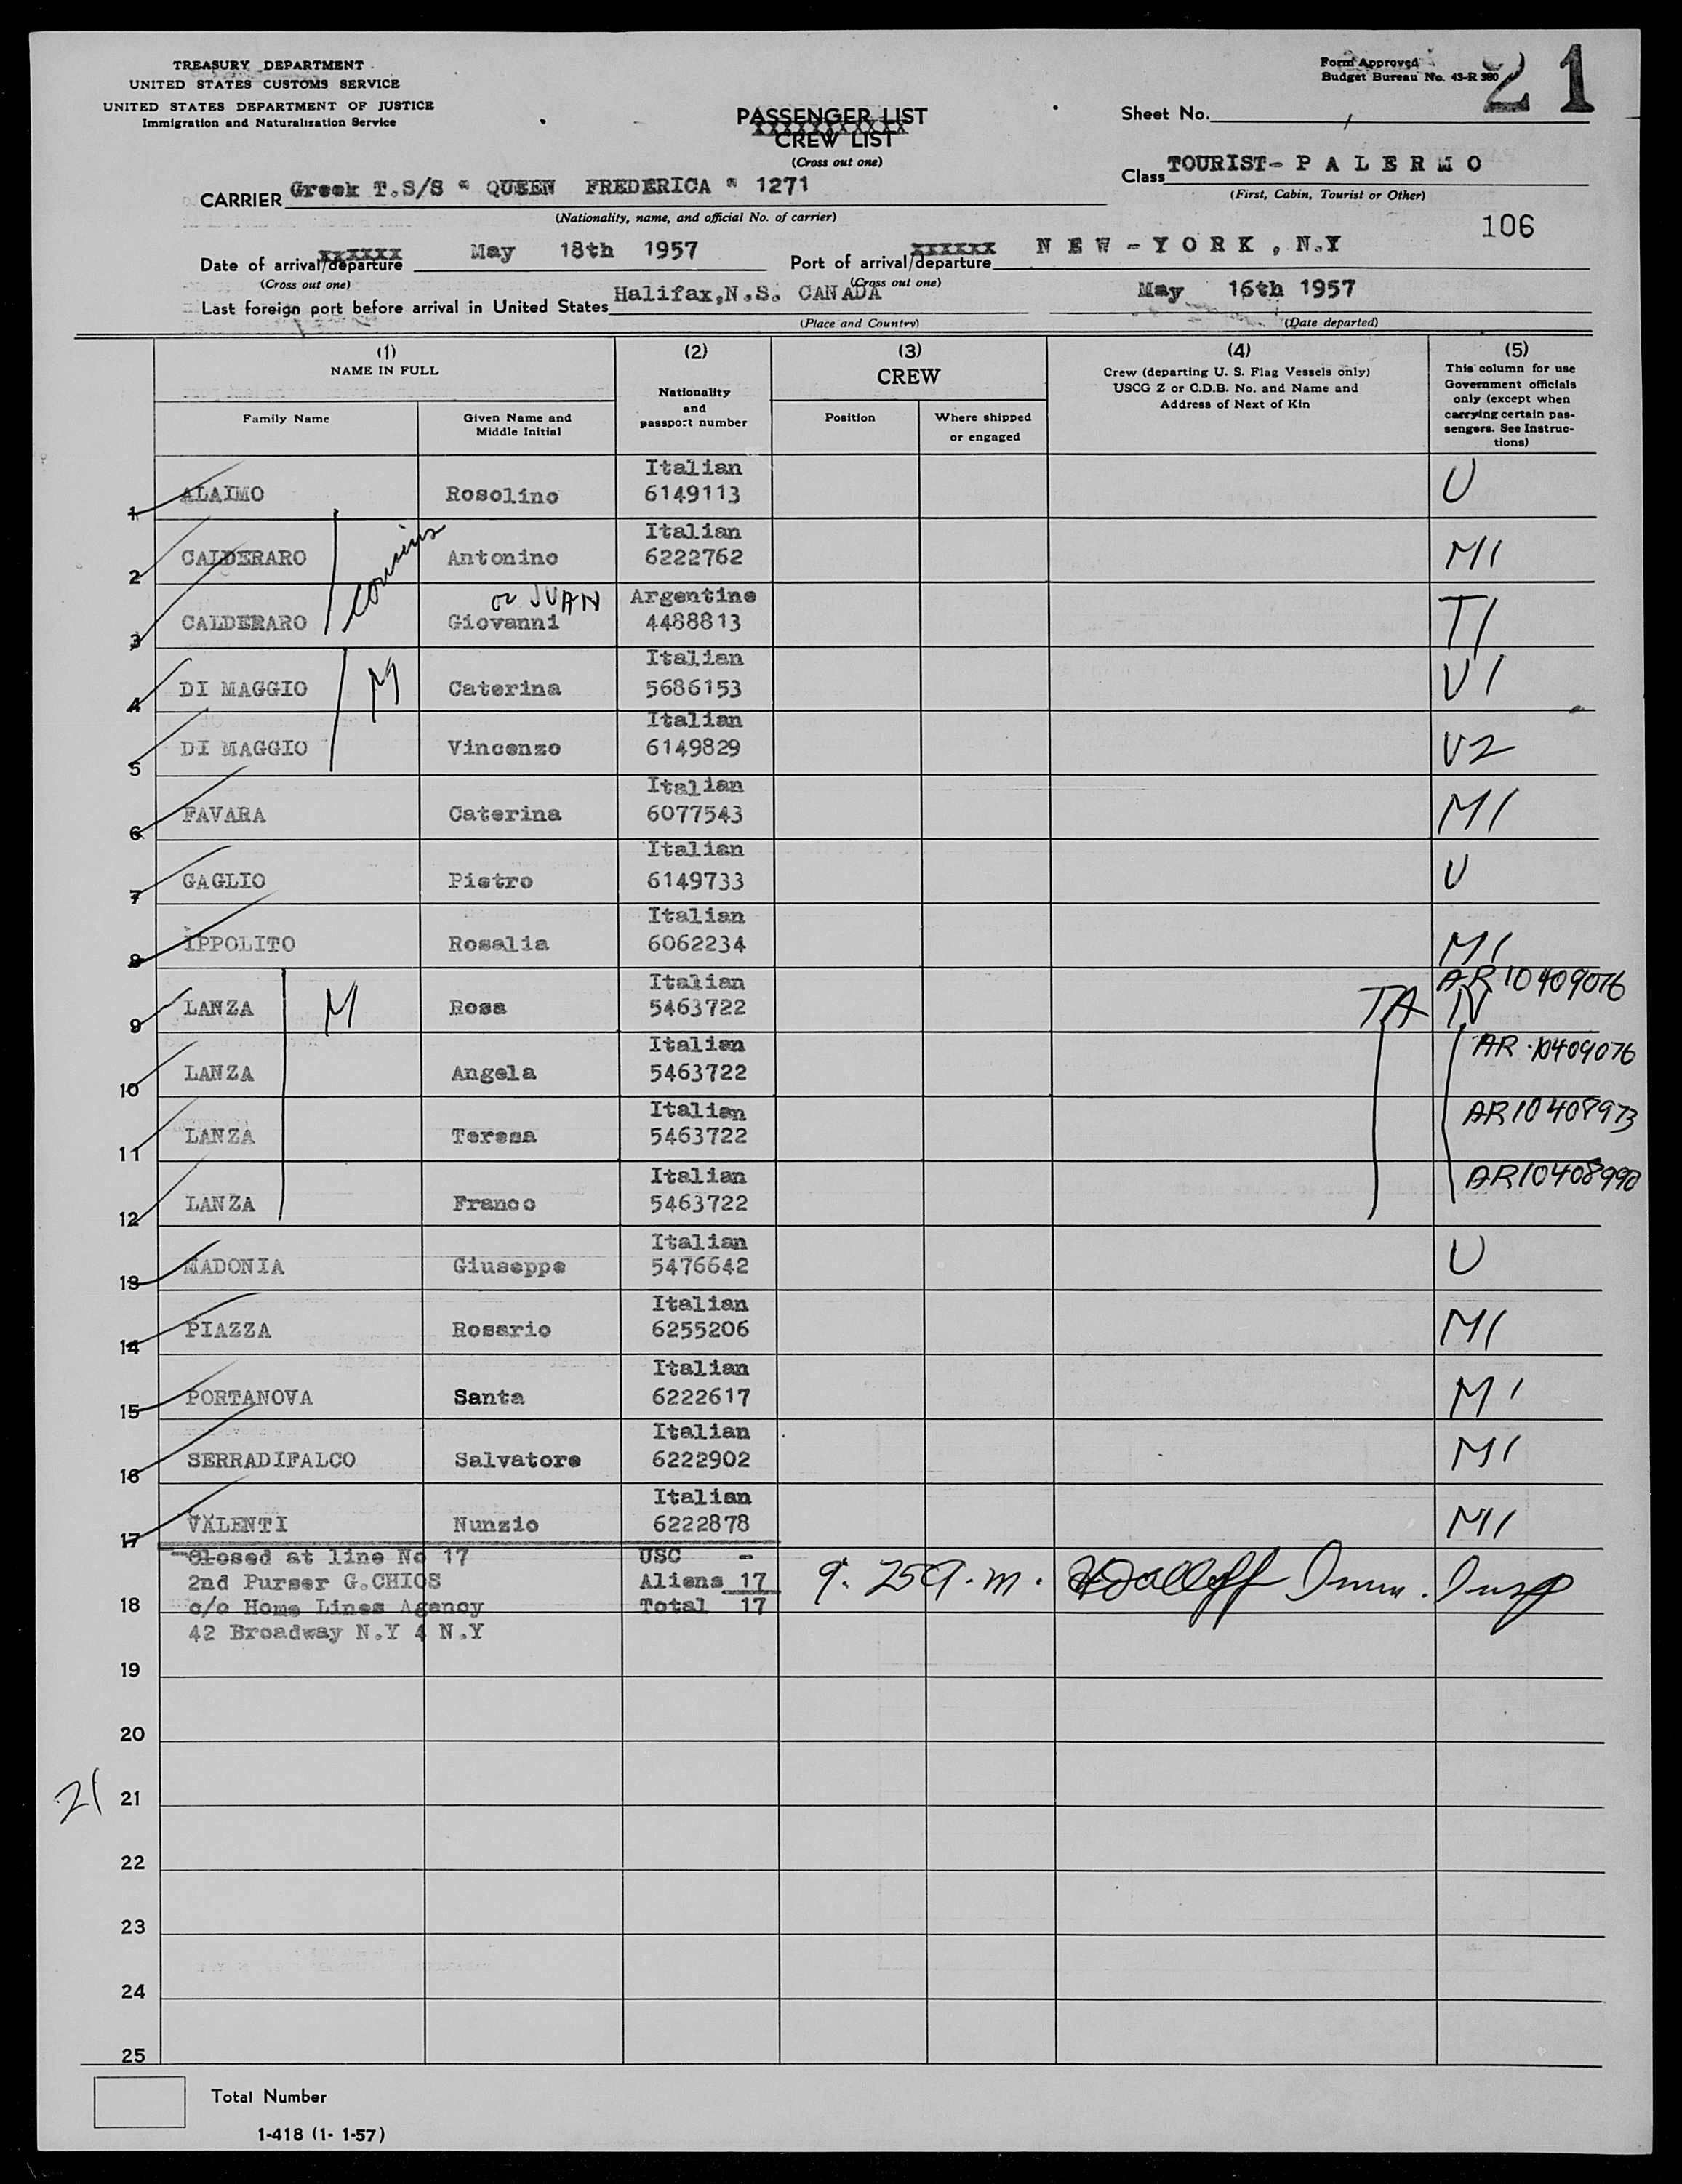 TREASURY DEPARTMENT
UNITED STATES CUSTOMS SERVICE
UNITED STATES DEPARTMENT OF JUSTICE
Immigration and Naturalization Service
Form Approved
Budget Bureau No. 43-R 380
21
PASSENGER LIST
XXXXXXXXXXX
CREW LIST
(Cross out one)
Sheet No. 1
CARRIER Greek T.S/S " QUEEN FREDERICA " 1271
(Nationality, name, and official No. of carrier)
Class TOURIST- P A L E R M O
(First, Cabin, Tourist or Other)
106
Date of arrival/departure xxxxxx May 18th 1957
(Cross out one)
Port of arrival/departure xxxxxx N E W - Y O R K , N.Y
(Cross out one)
Last foreign port before arrival in United States Halifax,N.S. CANADA May 16th 1957
(Place and Country) (Date departed)
(1) NAME IN FULL
(2) Nationality and passport number
(3) CREW
(4) Crew (departing U. S. Flag Vessels only) USCG Z or C.D.B. No. and Name and Address of Next of Kin
(5) This column for use Government officials only (except when carrying certain passengers. See Instructions)
Family Name Given Name and Middle Initial Position Where shipped or engaged
1 ALAIMO Rosolino Italian 6149113 U
2 CALDERARO Antonino Italian 6222762 M1
cousins
3 CALDERARO Giovanni or JUAN Argentine 4488813 T1
4 DI MAGGIO M Caterina Italian 5686153 V1
5 DI MAGGIO Vincenzo Italian 6149829 V2
6 FAVARA Caterina Italian 6077543 M1
7 GAGLIO Pietro Italian 6149733 U
8 IPPOLITO Rosalia Italian 6062234 M1
9 LANZA M Rosa Italian 5463722 TA N AR 10409076
10 LANZA Angela Italian 5463722 AR 10409076
11 LANZA Teresa Italian 5463722 AR10408973
12 LANZA Franco Italian 5463722 AR10408990
13 MADONIA Giuseppe Italian 5476642 U
14 PIAZZA Rosario Italian 6255206 M1
15 PORTANOVA Santa Italian 6222617 M1
16 SERRADIFALCO Salvatore Italian 6222902 M1
17 VALENTI Nunzio Italian 6222878 M1
Closed at line No 17 USC -
2nd Purser G.CHIOS Aliens 17 9.25 a.m. Imm. Insp
18 c/o Home Lines Agency Total 17
42 Broadway N.Y 4 N.Y
19
20
21 21
22
23
24
25
Total Number
1-418 (1- 1-57)